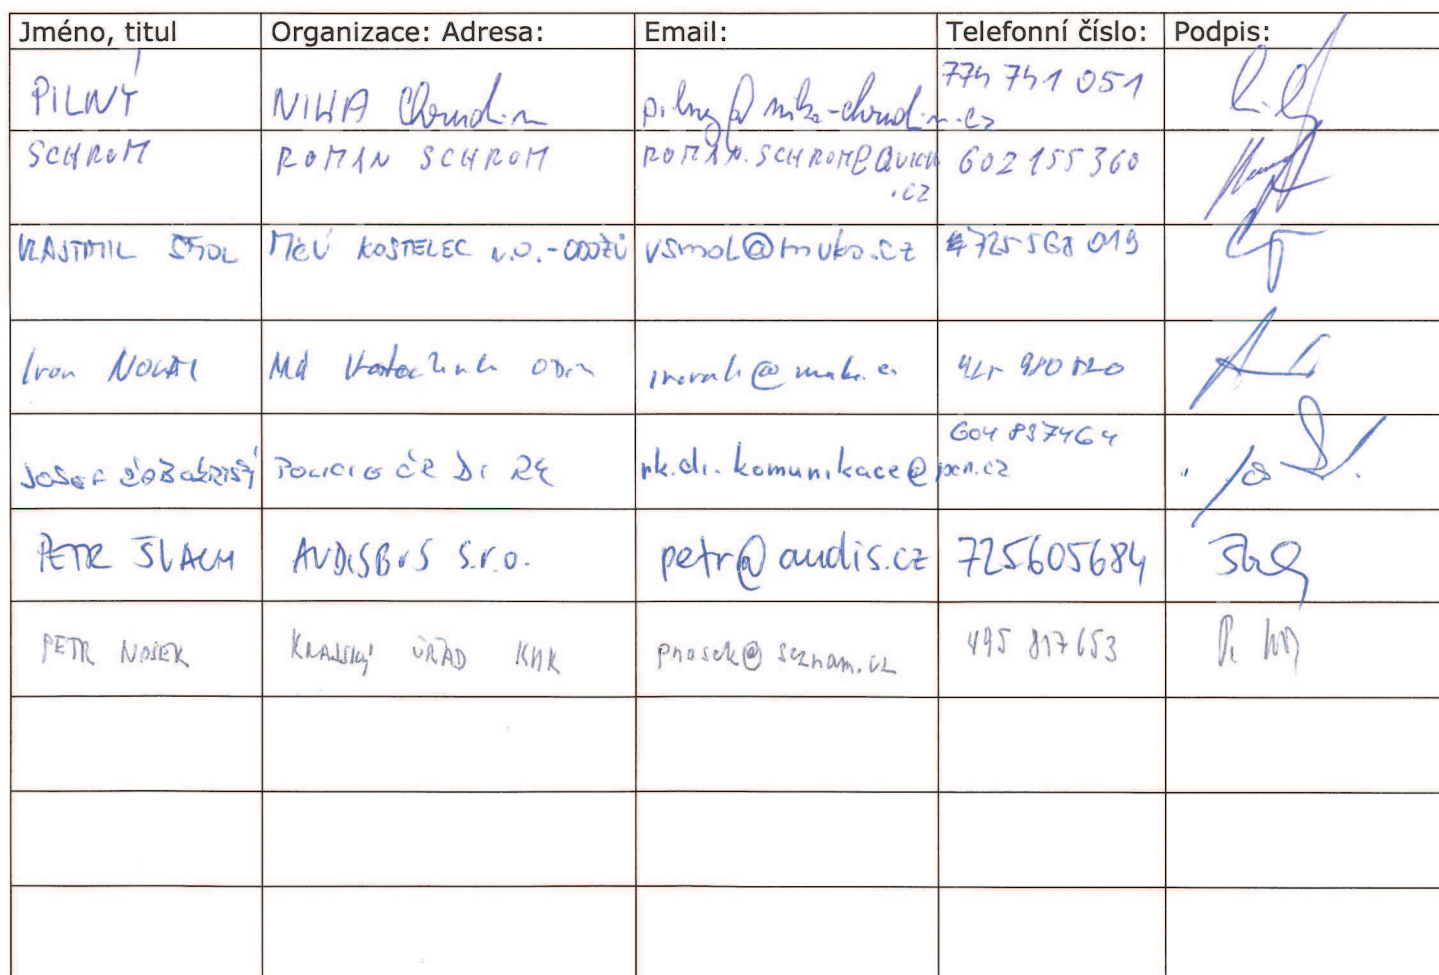 Jméno, titul Organizace: Adresa: Email: Telefonní číslo: Podpis:
PILNÝ NIKA Chrudim pilny@nika-chrudim.cz 774 741 051
SCHROM ROMAN SCHROM ROMAN.SCHROM@QUICK 602 155 360
.cz
VLASTIMIL ŠMOL MěÚ KOSTELEC n.O.- vsmol@muko.cz 725 568 019
Ivan NOVÁK
604 837464
JOSEF POLICIE ČR DI RK rk.di.komunikace@pcr.cz
PETR ŠLACH AUDISBUS s.r.o. petr@audis.cz 725605684
PETR NOSEK KRAJSKÝ ÚŘAD KHK pnosek@seznam.cz 495 817 653